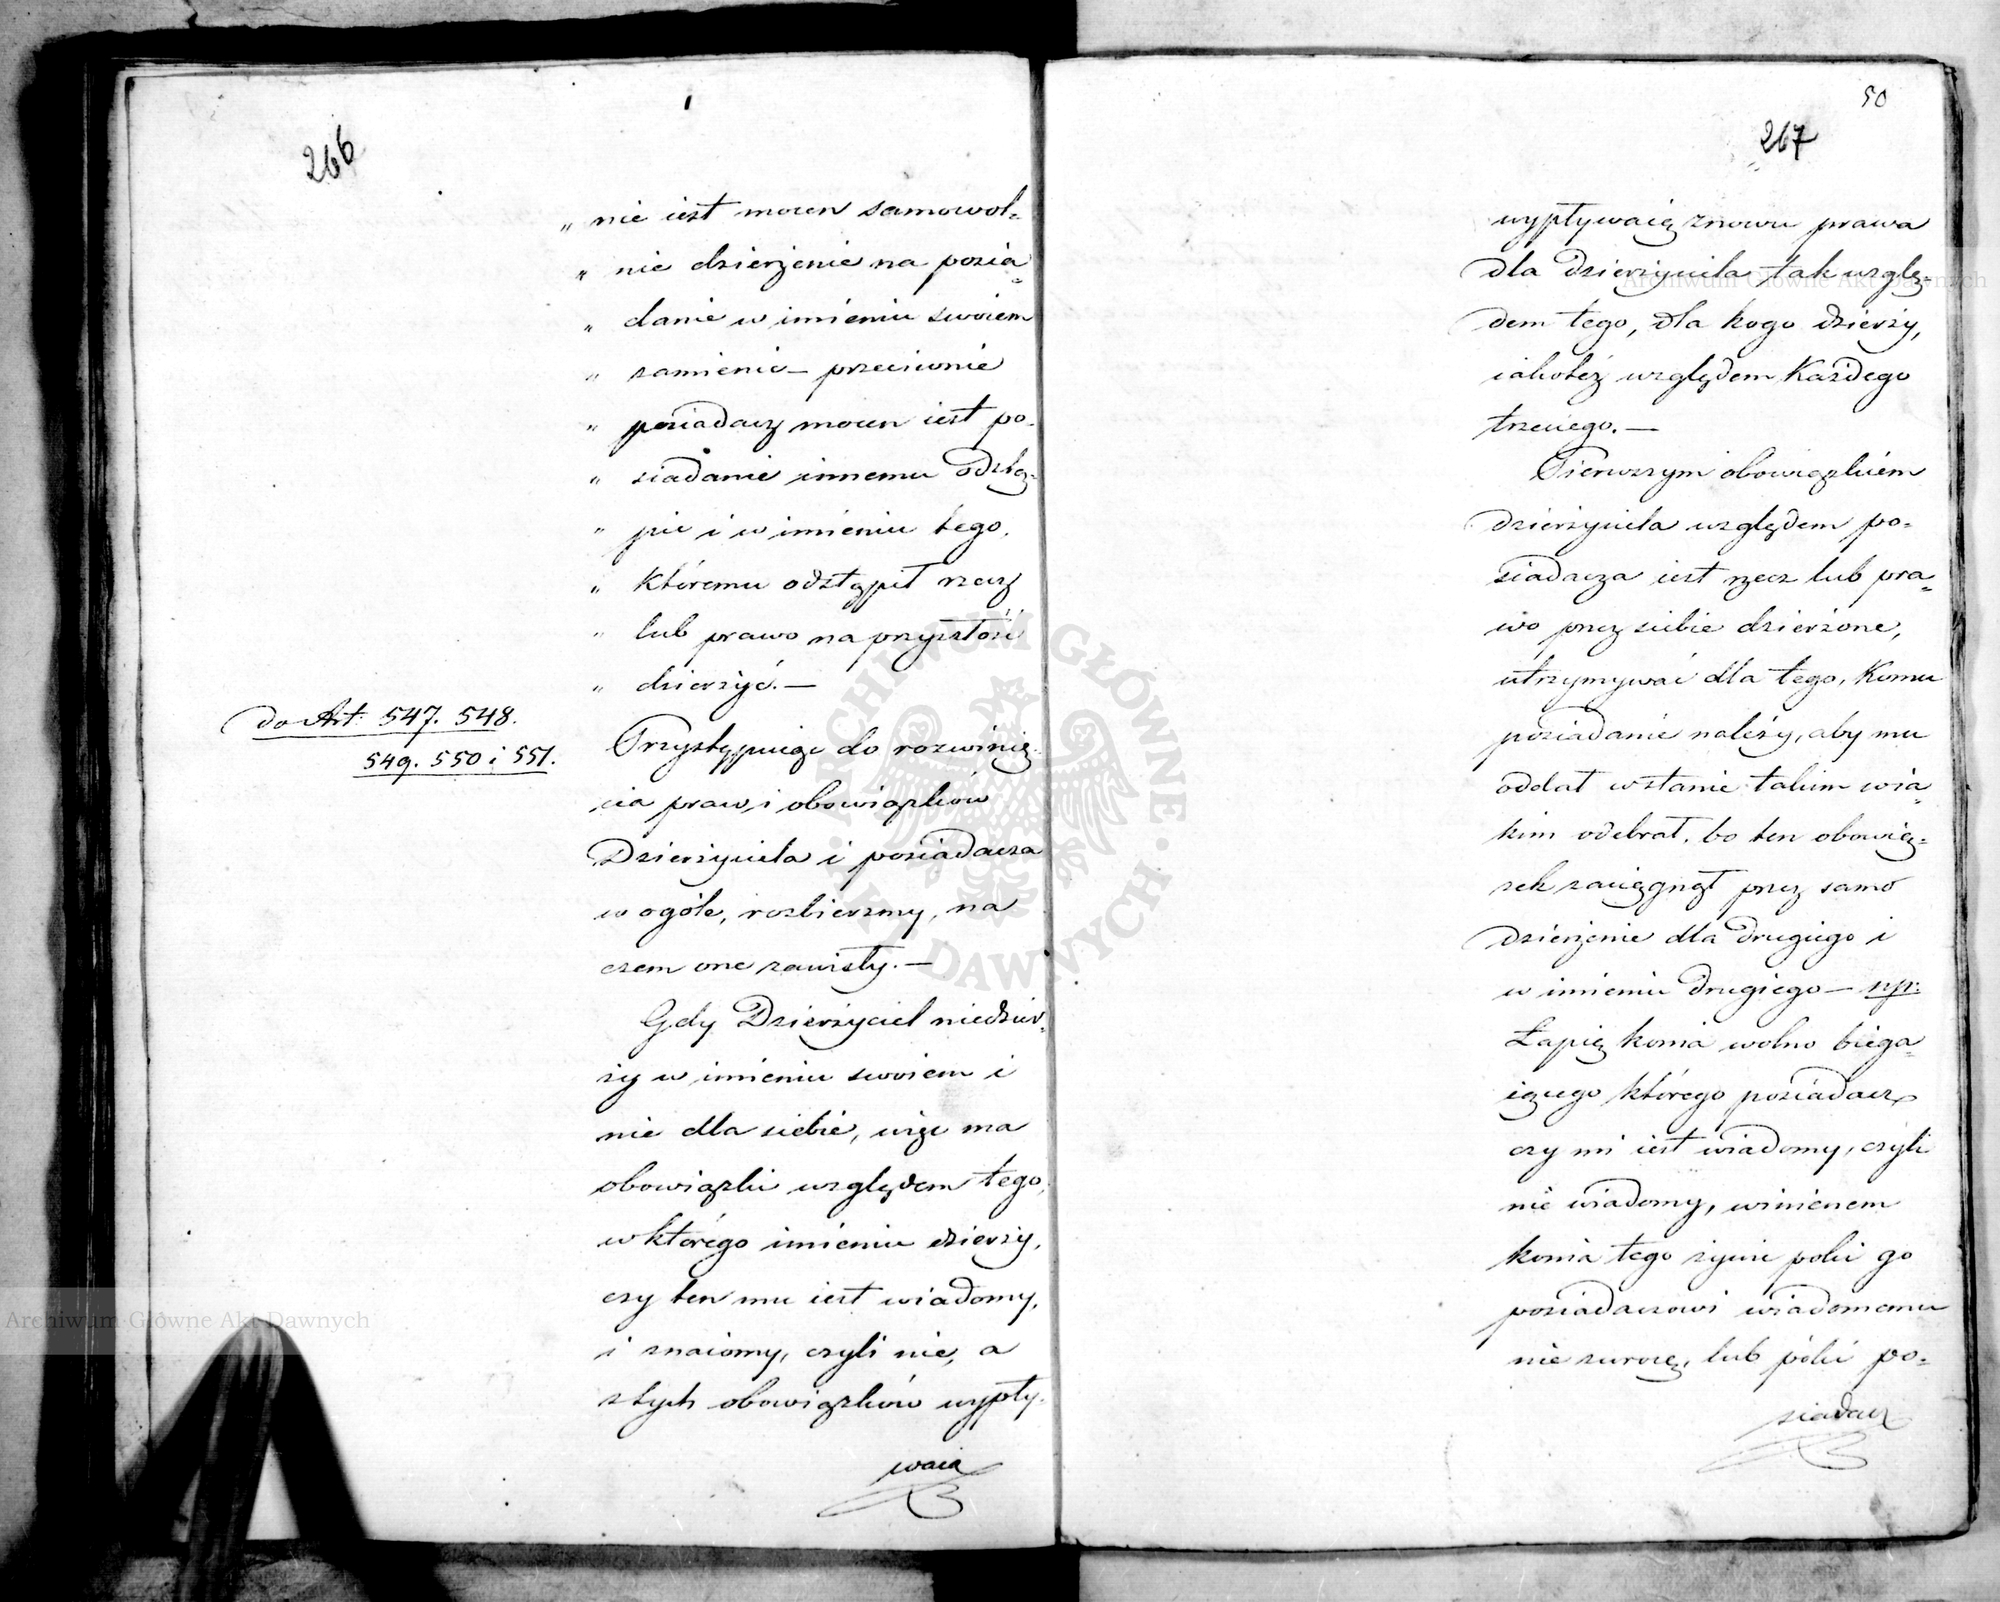 266
„ nie iest mocen samowol=
„ nie dzierzenie na posia=
„ danie w imieniu swoiem
„ zamienić — przeciwnie
„ posiadacz mocen iest po-
„ siadanie innemu odstą-
„ pić i w imieniu tego,
„ któremu odstąpił rzecz
„ lub prawo na przyszłość
„ dzierżyć. —
do Art: 547. 548.
549. 550 i 551.
Przystępuiąc do rozwinię-
cia praw i obowiązków
Dzierżyciela i posiadacza
w ogóle, rozbierzmy, na
czem one zawisły. —
Gdy Dzierżyciel niedzier-
ży w imieniu swoiem i
nie dla siebie, więc ma
obowiązki względem tego,
w którego imieniu dzierży,
czy ten mu iest wiadomy,
i znaiomy, czyli nie, a
z tych obowiązków wypły-
waią
50
267
wypływaią znowu prawa
dla Dzierżyciela tak wzglę-
dem tego, dla kogo dzierży,
iakoteż względem Każdego
trzeciego. —
Pierwszym obowiązkiem
dzierżyciela względem po=
siadacza iest rzecz lub pra=
wo przez siebie dzierżone,
utrzymywać dla tego, Komu
posiadanie należy, aby mu
oddał w stanie takim w ia=
kim odebrał, bo ten obowią=
zek zaciągnął przez samo
dzierzenie dla drugiego i
w imieniu drugiego — np:
Łapię konia wolno biega=
iącego którego posiadacz
czy mi iest wiadomy, czyli
nie wiadomy, winienem
konia tego żywić poki go
posiadaczowi wiadomemu
nie zwrócę, lub póki po=
siadacz
Archiwum Główne Akt Dawnych
Archiwum Główne Akt Dawnych
ARCHIWUM GŁÓWNE · AKT DAWNYCH ·